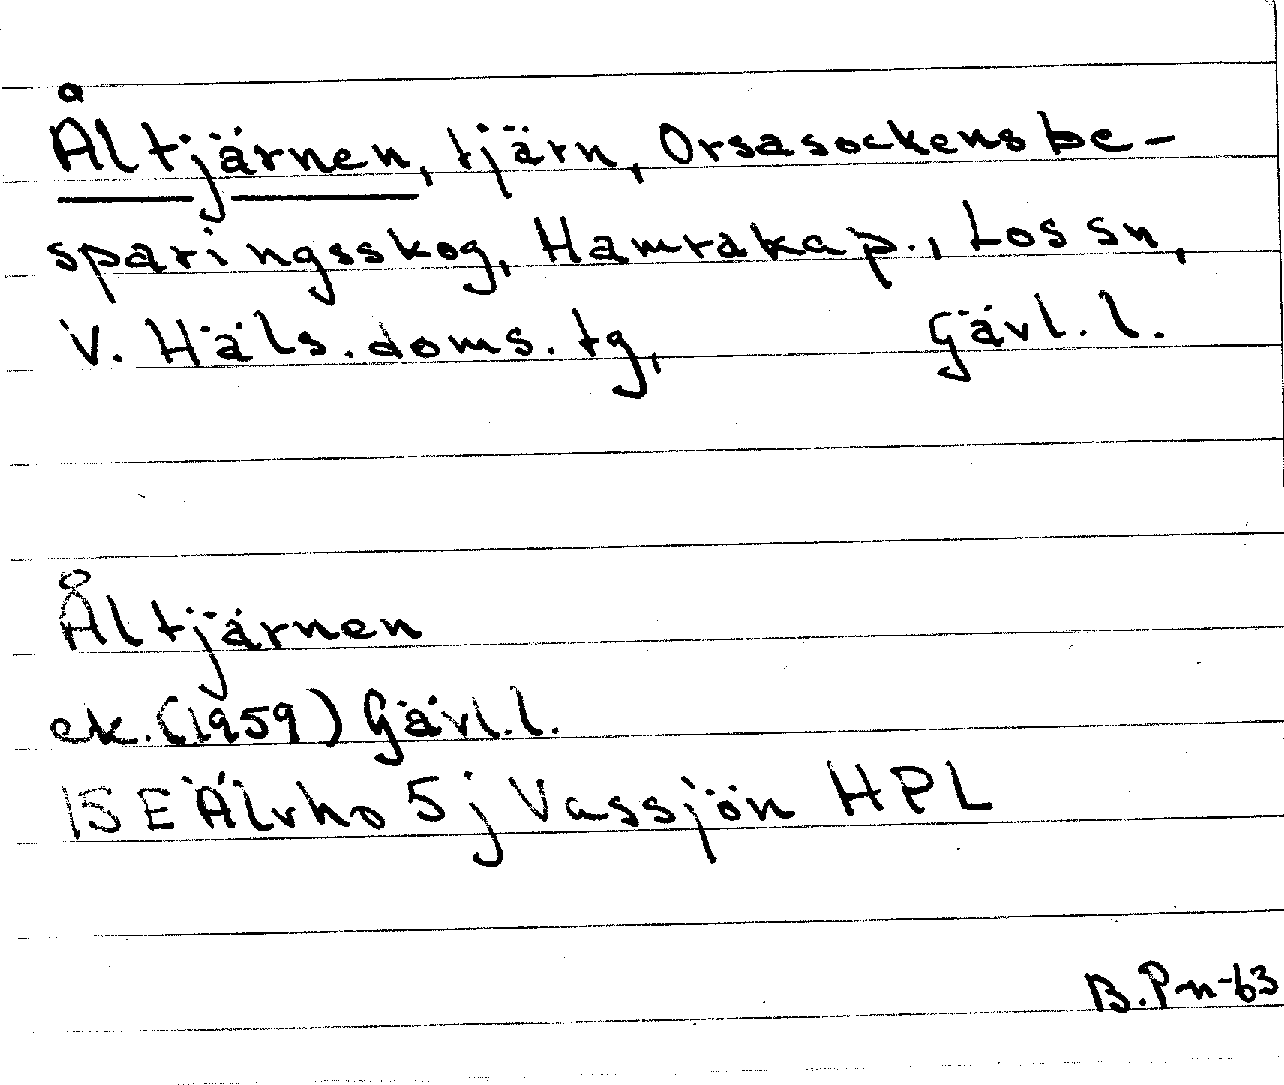 Åltjärnen, tjärn, Orsa sockens be-
sparingsskog, Hamra kap., Los sn,
V. Häls. doms. tg, Gävl. l.
Åltjärnen
ek. (1959) Gävl. l.
15E Älvho 5j Vassjön HPL
B. Pn -63